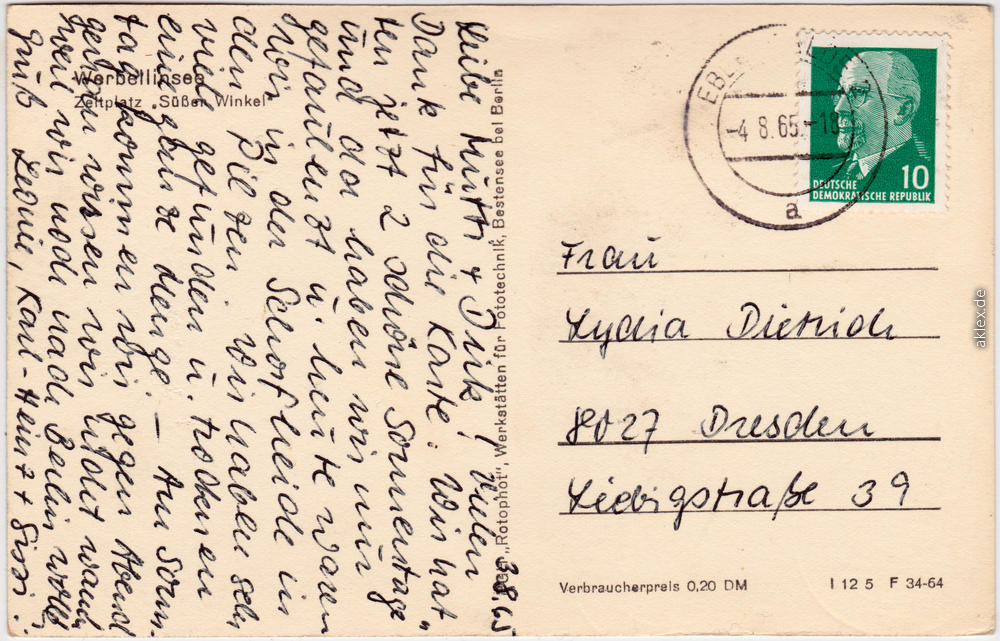 Werbellinsee
Zeltplatz „Süßen Winkel"
3.8.65
Liebe Mutti + Dirk! Vielen
Dank für die Karte. Wir hat-
ten jetzt 2 schöne Sonnentage
und da haben wir nur
gefaulenzt u. heute waren
wir in der Schorfheide in
den Pilzen. Wir haben sehr
viel gefunden u. trocknen
eine ganze Menge. – Am Sonn-
tag kommen wir gegen Abend
genau wissen wir nicht wann
weil wir noch nach Berlin wolln
Gruß Leonie, Karl-Heinz + Sissi.
"Rotophot", Werkstätten für Fototechnik, Bestensee bei Berlin
-4.8.65.-18
a
DEUTSCHE
DEMOKRATISCHE REPUBLIK
10
Frau
Lydia Dietrich
8027 Dresden
Liebigstraße 39
Verbraucherpreis 0,20 DM
I 12 5 F 34-64
aklex.de